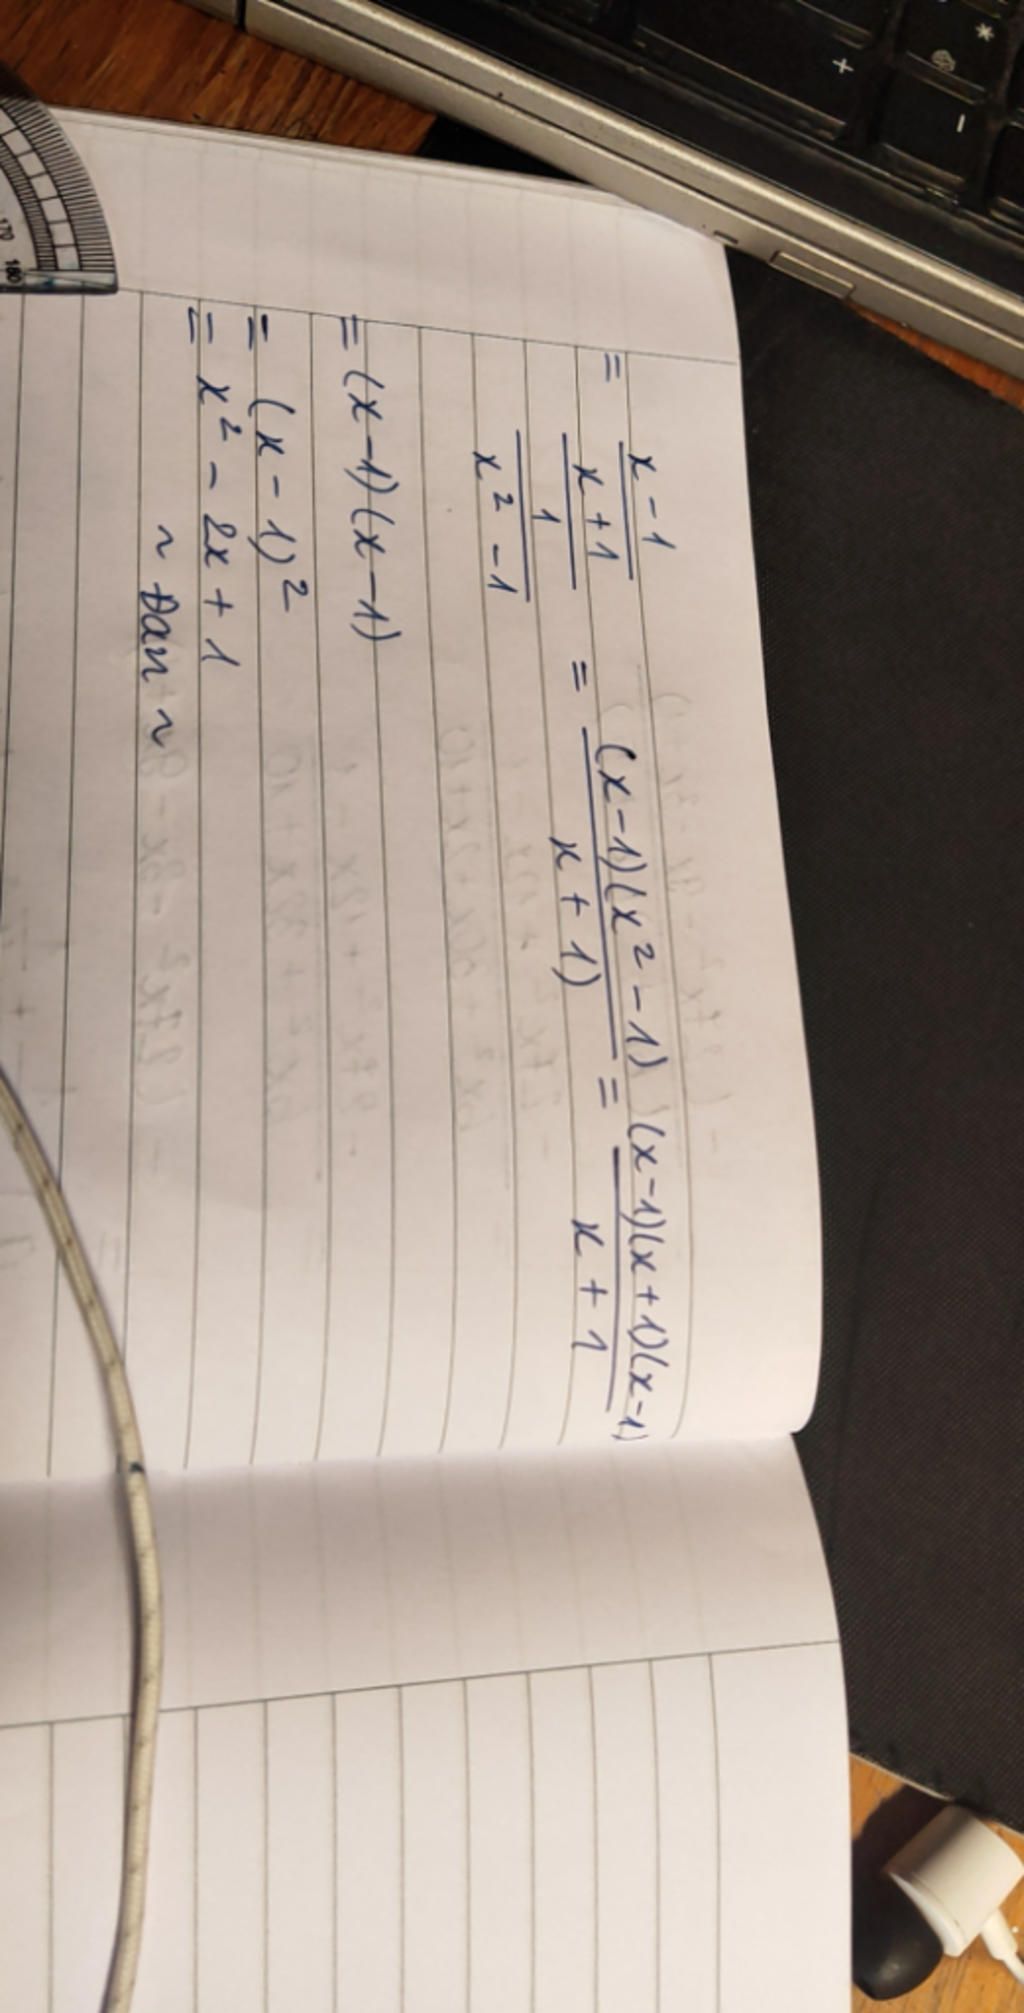 = \frac{\frac{x-1}{x+1}}{\frac{1}{x^2-1}} = \frac{(x-1)(x^2-1)}{x+1)} = \frac{(x-1)(x+1)(x-1)}{x+1}
= (x-1)(x-1)
= (x-1)^2
= x^2 - 2x + 1
~ Đan ~
170
180
+
*